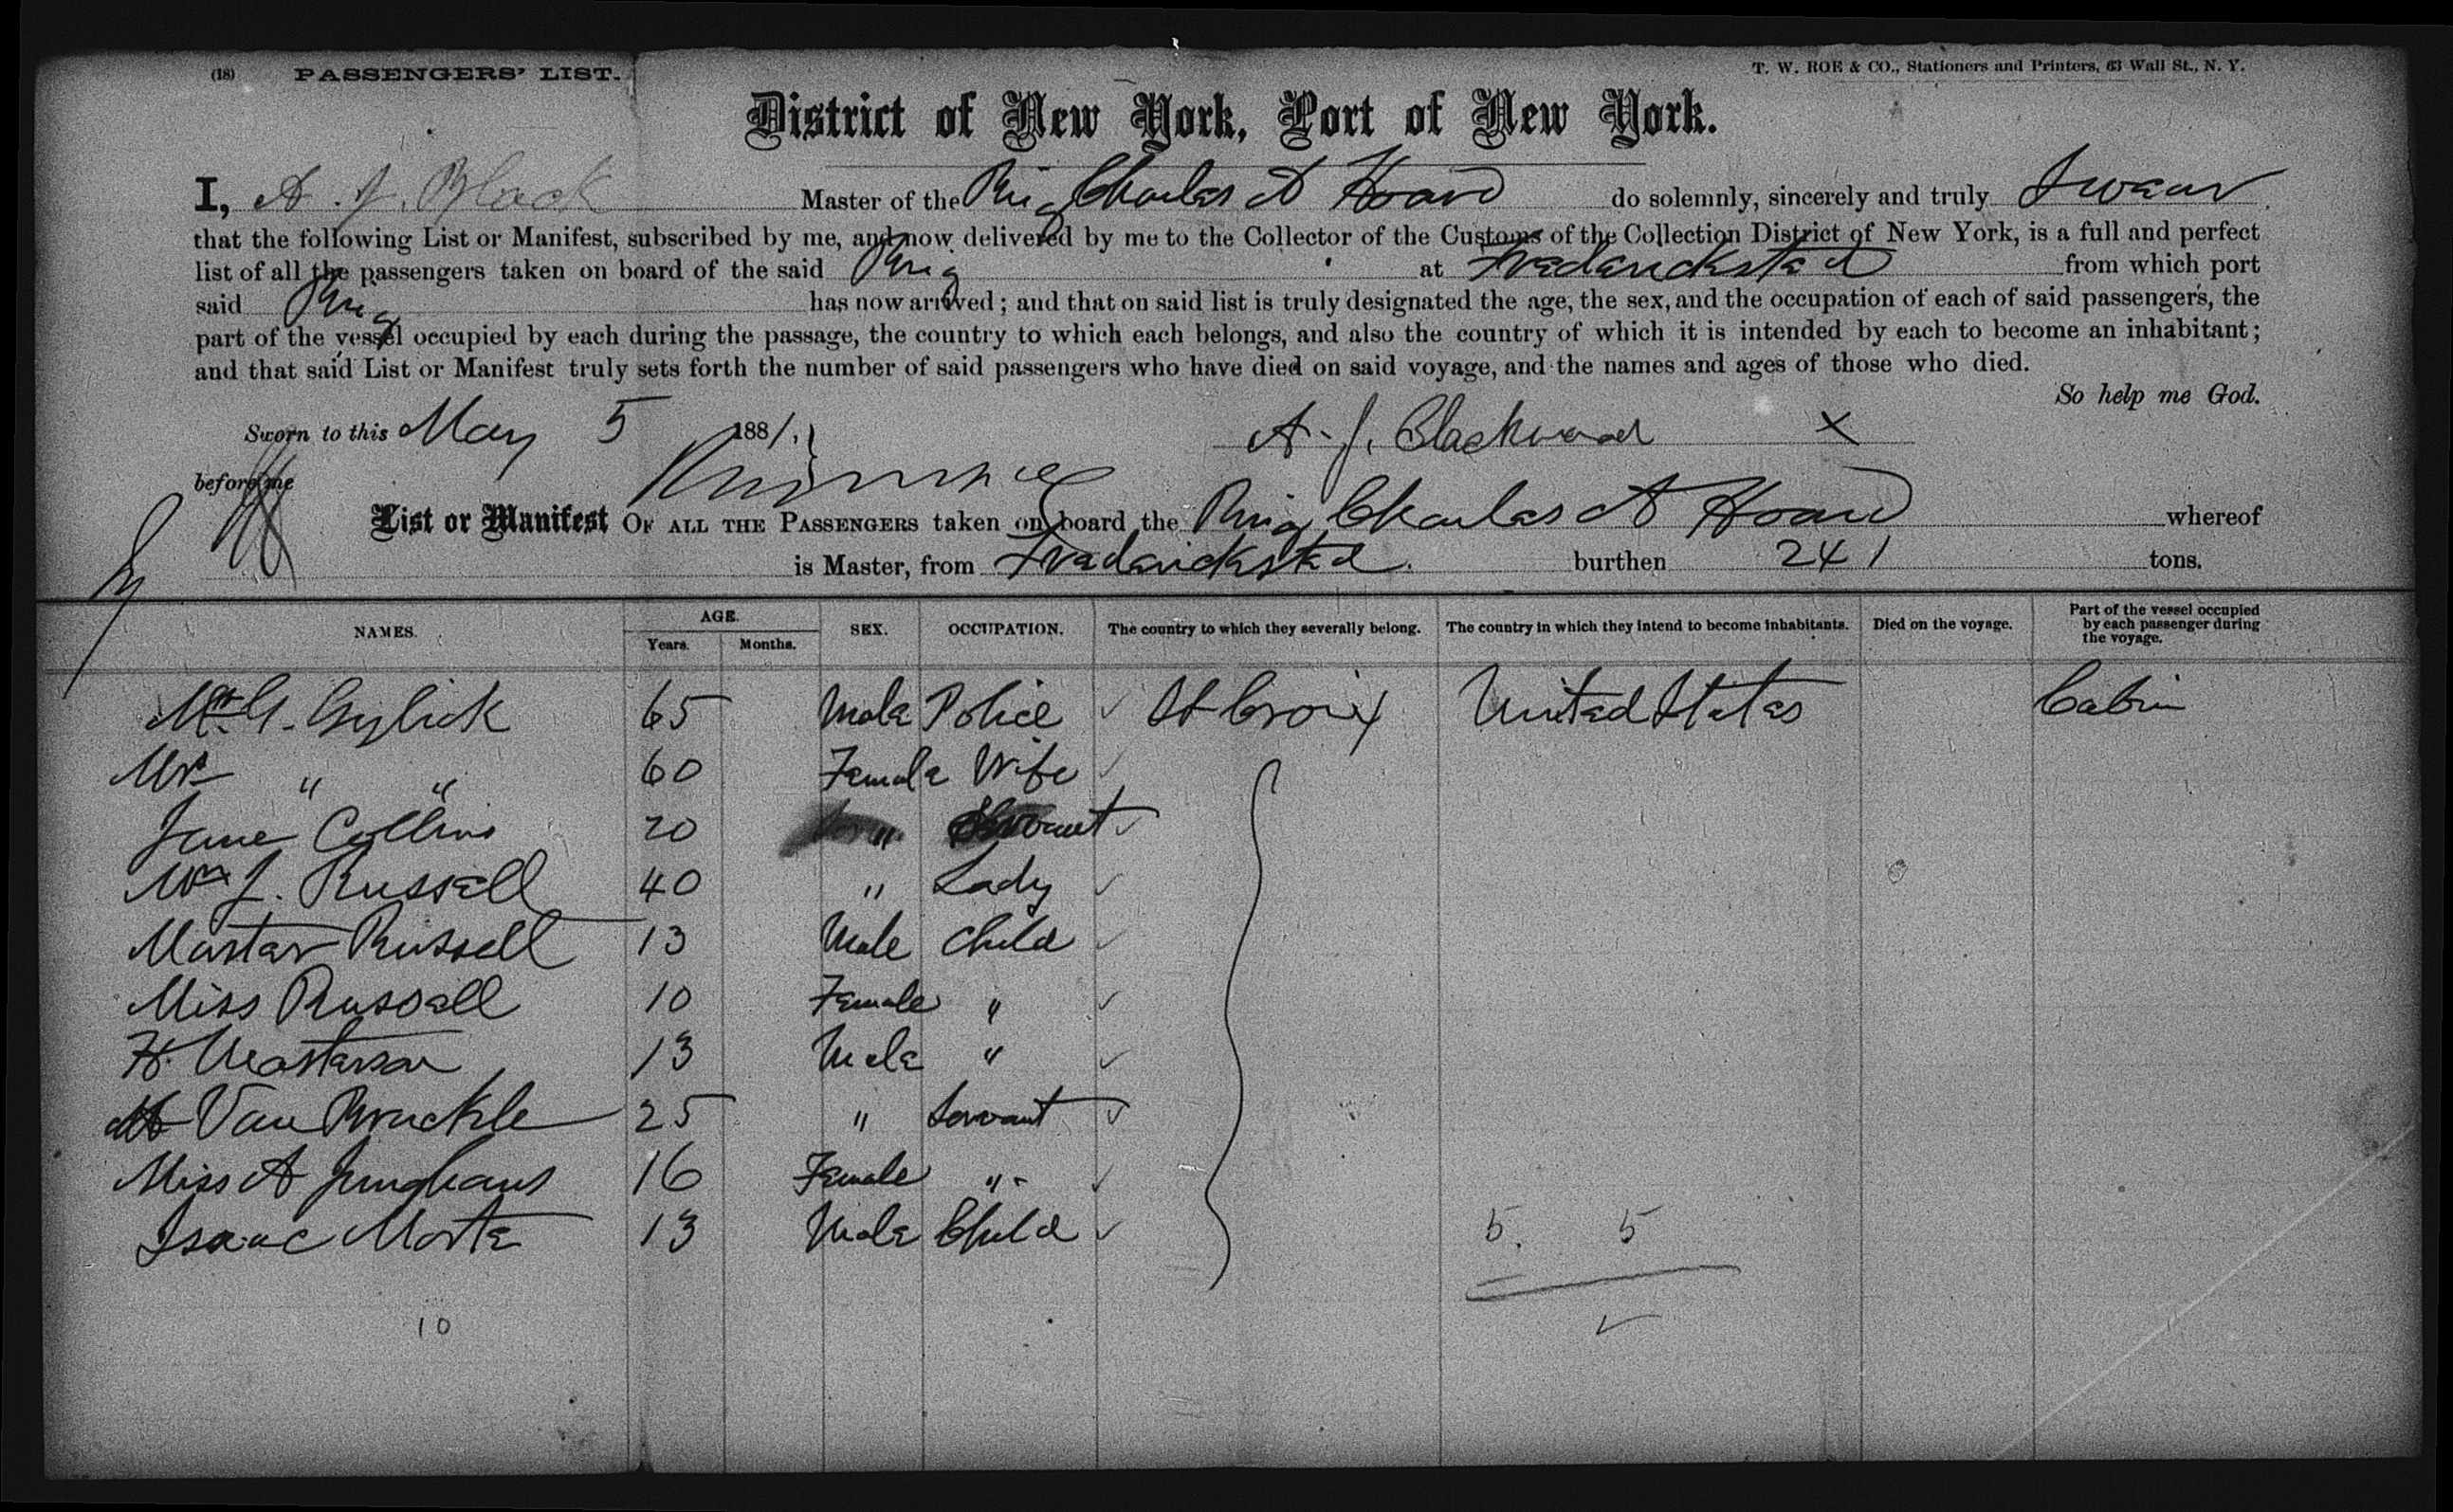 (18) PASSENGERS' LIST. T. W. ROE & CO., Stationers and Printers, 63 Wall St., N. Y.
District of New York, Port of New York.
I, A. J. Black Master of the Brig Charles A Hoard do solemnly, sincerely and truly Swear
that the following List or Manifest, subscribed by me, and now delivered by me to the Collector of the Customs of the Collection District of New York, is a full and perfect
list of all the passengers taken on board of the said Brig at Fredericksted from which port
said Brig has now arrived; and that on said list is truly designated the age, the sex, and the occupation of each of said passengers, the
part of the vessel occupied by each during the passage, the country to which each belongs, and also the country of which it is intended by each to become an inhabitant;
and that said List or Manifest truly sets forth the number of said passengers who have died on said voyage, and the names and ages of those who died.
So help me God.
Sworn to this May 5 1881. A. J. Blackwood X
before me
List or Manifest OF ALL THE PASSENGERS taken on board the Brig Charles A Hoard whereof
is Master, from Fredericksted. burthen 241 tons.
NAMES. AGE. Years. Months. SEX. OCCUPATION. The country to which they severally belong. The country in which they intend to become inhabitants. Died on the voyage. Part of the vessel occupied by each passenger during the voyage.
Mr G. Gylick 65 Male Police ✓ St Croix United States Cabin
Mrs " " 60 Female Wife ✓
Jane Collins 20 " Servant ✓
Mrs J. Russell 40 " Lady ✓
Master Russell 13 Male Child ✓
Miss Russell 10 Female " ✓
H. Masterson 13 Male " ✓
Van Brackle 25 " Servant ✓
Miss A Junghans 16 Female " ✓
Isaac Morte 13 Male Child ✓ 5. 5
10 ✓